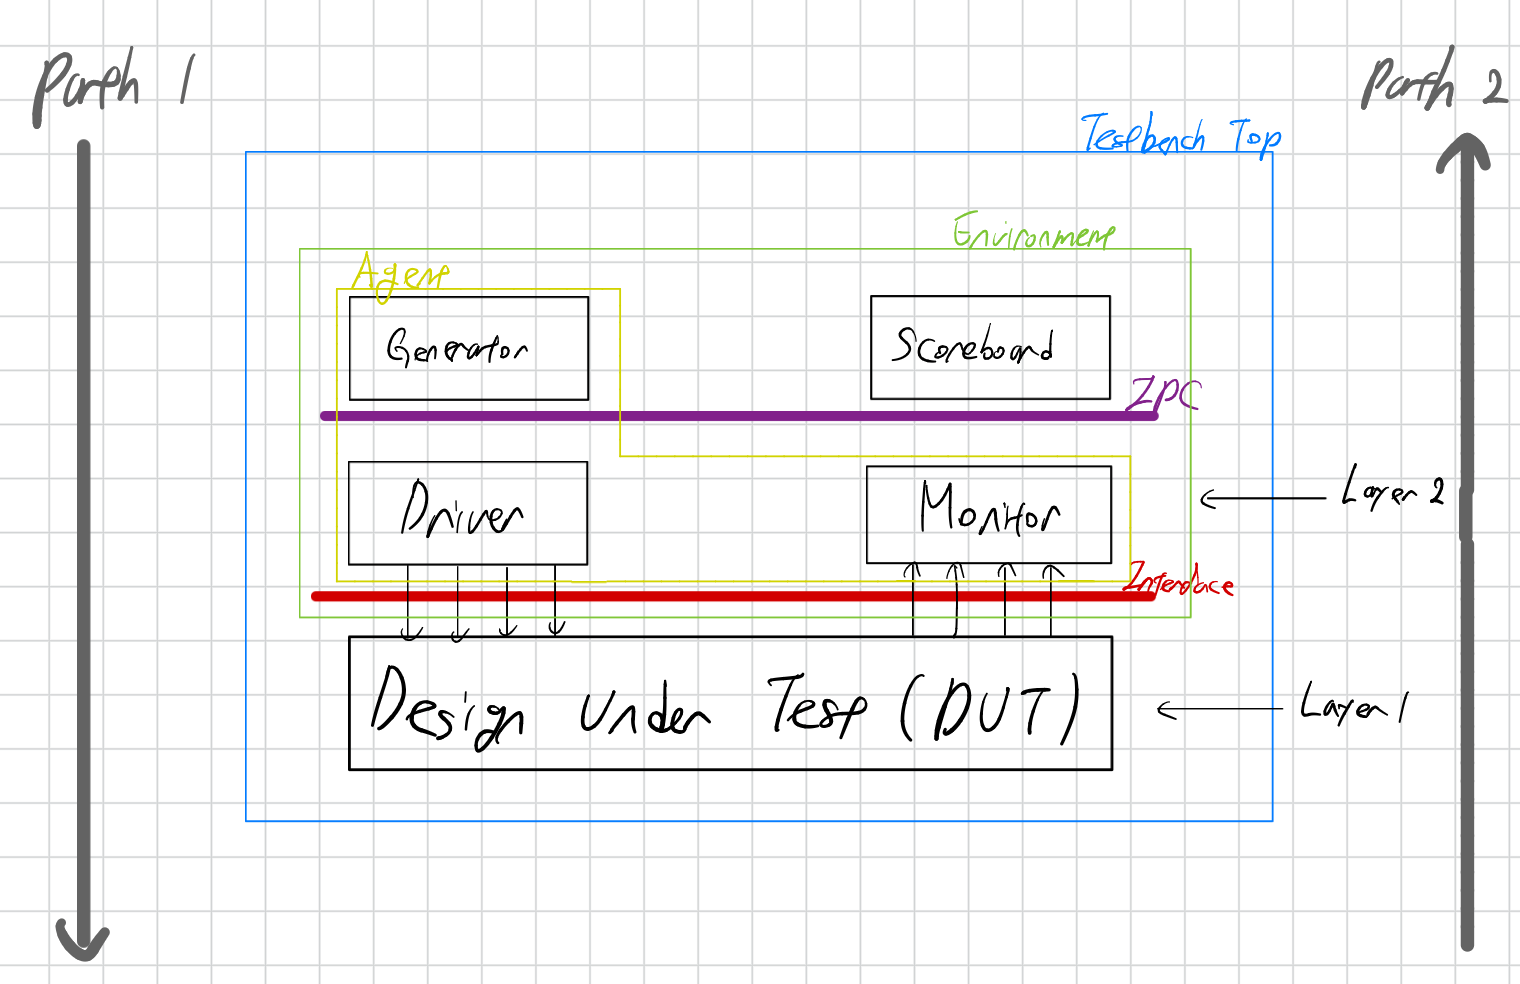 Path 1
Path 2
Testbench Top
Environment
Agent
Generator
Scoreboard
IPC
Driver
Monitor
Layer 2
Interface
Design Under Test (DUT)
Layer 1